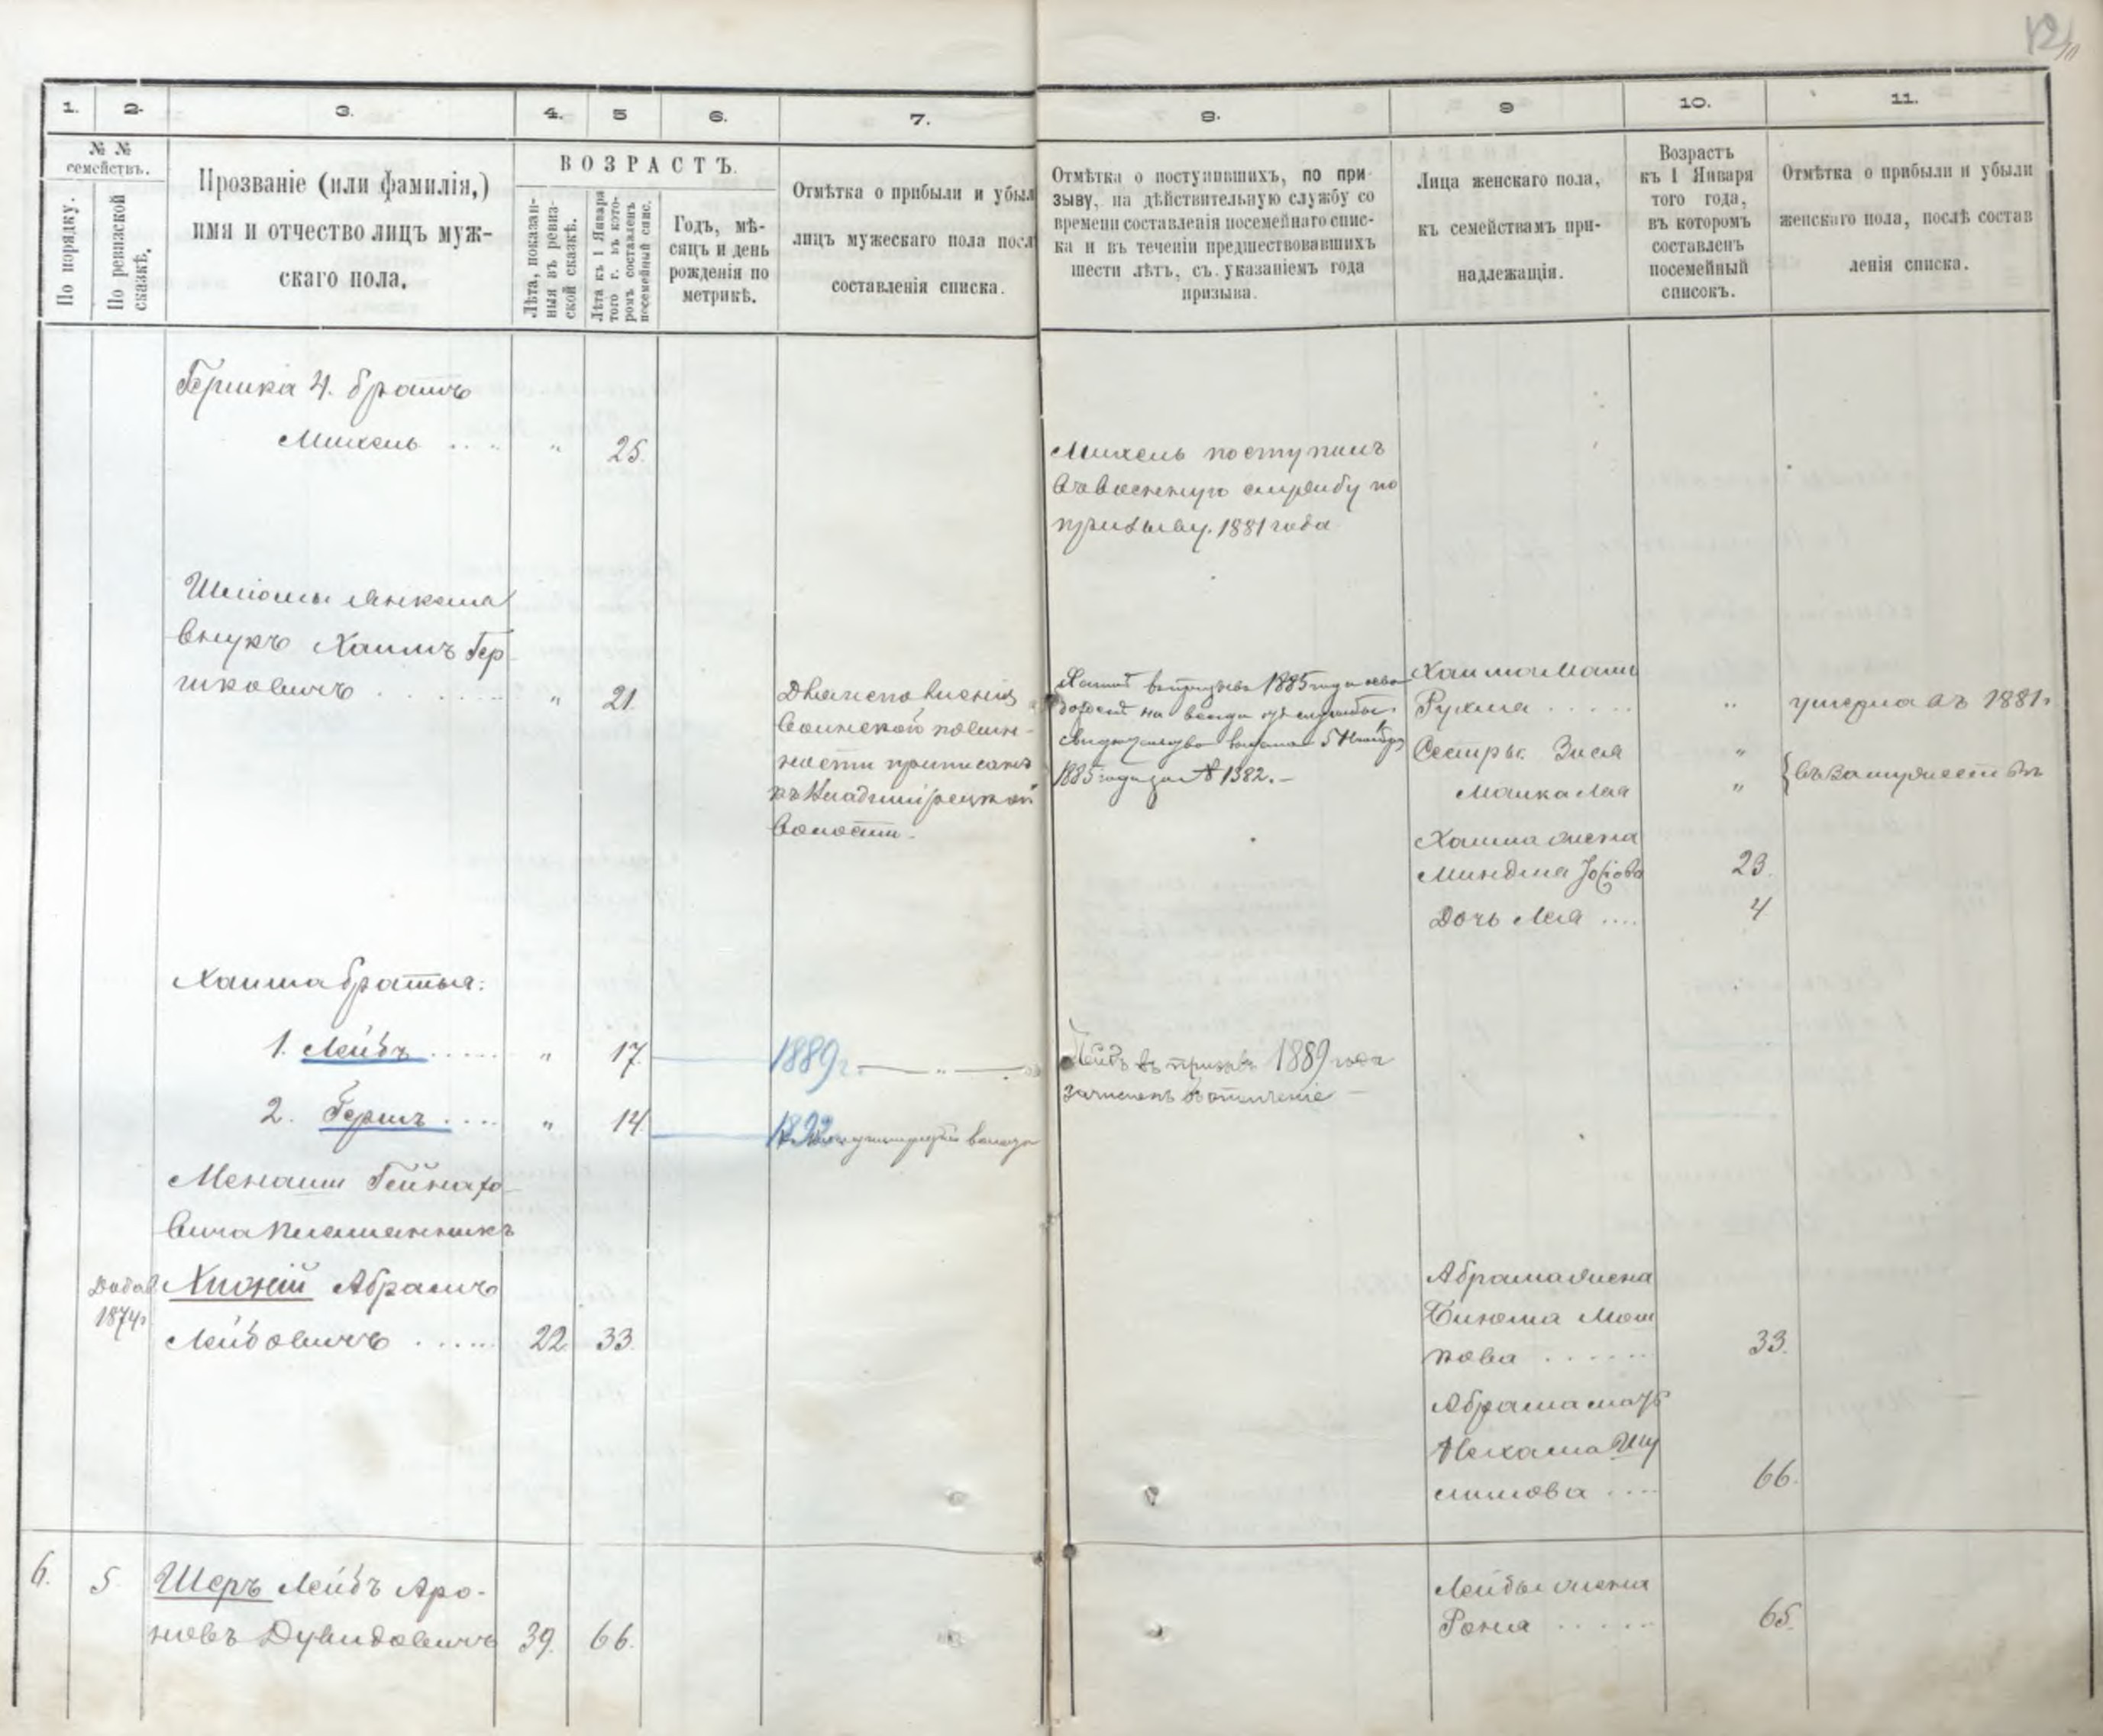 12
10
1. 2. 3. 4. 5 6. 7. 8. 9 10. 11.
№ №
семействъ.
По порядку.
По ревизской
сказкѣ.
Прозваніе (или фамилія,)
имя и отчество лицъ муж-
скаго пола.
ВОЗРАСТЪ.
Лѣта, показан-
ныя въ ревиз-
ской сказкѣ.
Лѣта къ 1 Января
того г. въ кото-
ромъ составленъ
посемейный спис.
Годъ, мѣ-
сяцъ и день
рожденія по
метрикѣ.
Отмѣтка о прибыли и убыл
лицъ мужескаго пола посл
составленія списка.
Отмѣтка о поступившихъ, по при
зыву, на дѣйствительную службу со
времени составленія посемейнаго спис-
ка и въ теченіи предшествовавшихъ
шести лѣтъ, съ указаніемъ года
призыва.
Лица женскаго пола,
къ семействамъ при-
надлежащія.
Возрастъ
къ 1 Января
того года,
въ которомъ
составленъ
посемейный
списокъ.
Отмѣтка о прибыли и убыли
женскаго пола, послѣ состав
ленія списка.
Гершка 4. братъ
Михель .... " 25.
Михель поступилъ
въ военную службу по
призыву. 1881 года
Шліомы Янкеля
внукъ Хаимъ Гер
шковичъ ....... " 21.
Для исполненія
воинской повин-
ности приписанъ
къ
волости.
Хаимъ въ призывъ 1885 года осво
божденъ на всегда отъ службы.
Свидѣтельство выдано 5 Ноября
1885 года за № 1382.-
Хаима Мать
Рухля ..... " умерла въ 1881 г.
Сестры: Зися "
Малка Лая " } въ замужествѣ
Хаима жена
Миндля Іосіова 23.
Дочь Лея .... 4
Хаима братья:
1. Лейбъ ..... " 17. 1889 г. — " —
Лейбъ въ призывъ 1889 года
зачисленъ въ ополченіе —
2. Гершъ .... " 14. 1892
волости
Менаши Гейнахо-
вича племянникъ
Добав.
1874 г.
Хижній Абрамъ
Лейбовичъ ...... 22. 33.
Абрама жена
Бинюма Мош
кова ...... 33.
Абрама мать
Нехама Шу
лимова .... 66.
6. 5. Шеръ Лейбъ Аро-
новъ Дувидовичъ 39. 66.
Лейбы жена
Роня ..... 65.